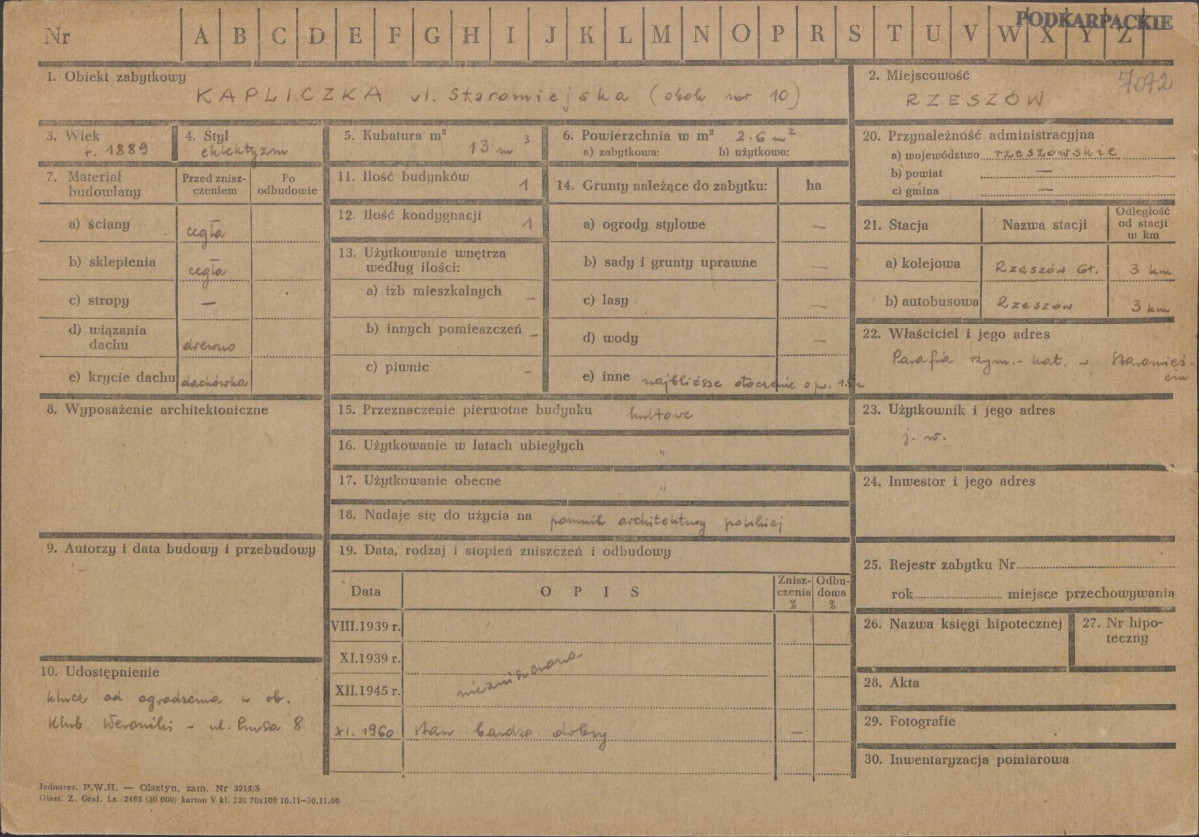 PODKARPACKIE
Nr A B C D E F G H I J K L M N O P R S T U V W X Y Z
7072
1. Obiekt zabytkowy
KAPLICZKA ul. Staromiejska (obok nr 10)
2. Miejscowość
RZESZÓW
3. Wiek
r. 1889
4. Styl
eklektyzm
5. Kubatura m³
13 m³
6. Powierzchnia w m² 2.6 m²
a) zabytkowa: b) użytkowa:
7. Materiał budowlany
Przed zniszczeniem
Po odbudowie
a) ściany cegła
b) sklepienia cegła
c) stropy —
d) wiązania dachu drewno
e) krycie dachu dachówka
8. Wyposażenie architektoniczne
9. Autorzy i data budowy i przebudowy
–
10. Udostępnienie
klucz od ogrodzenia w ob.
Klub Weroniki – ul. Prusa 8
11. Ilość budynków 1
12. Ilość kondygnacji 1
13. Użytkowanie wnętrza
według ilości:
a) izb mieszkalnych –
b) innych pomieszczeń –
c) piwnic –
14. Grunty należące do zabytku: ha
a) ogrody stylowe —
b) sady i grunty uprawne —
c) lasy —
d) wody —
e) inne najbliższe otoczenie o pw.
15. Przeznaczenie pierwotne budynku kultowe
16. Użytkowanie w latach ubiegłych "
17. Użytkowanie obecne "
18. Nadaje się do użycia na pomnik architektury polskiej
19. Data, rodzaj i stopień zniszczeń i odbudowy
Data O P I S Zniszczenia % Odbudowa %
VIII.1939 r.
XI.1939 r.
XII.1945 r. niezniszczona
XI. 1960 stan bardzo dobry —
20. Przynależność administracyjna
a) województwo rzeszowskie
b) powiat —
c) gmina —
21. Stacja Nazwa stacji Odległość od stacji w km
a) kolejowa Rzeszów Gł. 3 km
b) autobusowa Rzeszów 3 km
22. Właściciel i jego adres
Parafia rzym.-kat. w Staromieś-
ciu
23. Użytkownik i jego adres
j. w.
24. Inwestor i jego adres
25. Rejestr zabytku Nr
rok miejsce przechowywania
26. Nazwa księgi hipotecznej
27. Nr hipo-
teczny
28. Akta
29. Fotografie
30. Inwentaryzacja pomiarowa
Jednoraz. P.W.H. — Olsztyn, zam. Nr 3215/S
Olszt. Z. Graf. Lz. 2465 (30 000) karton V kl. 220 70x100 10.11—30.11.60